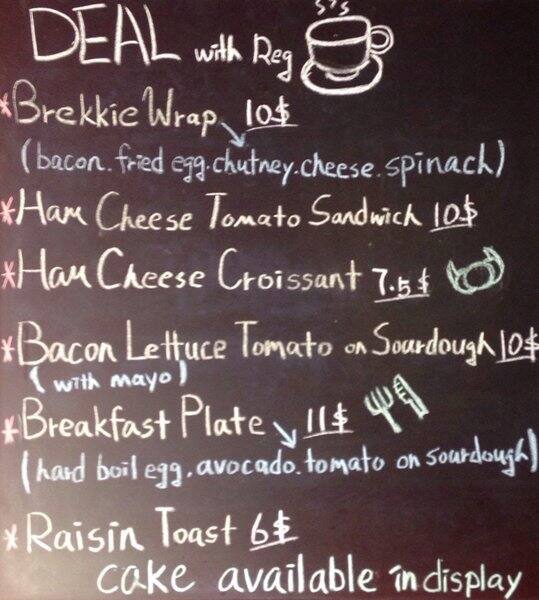 DEAL with Reg
*Brekkie Wrap 10$
(bacon.fried egg.chutney.cheese.spinach)
*Ham Cheese Tomato Sandwich 10$
*Ham Cheese Croissant 7.5$
*Bacon Lettuce Tomato on Sourdough 10$
(with mayo)
*Breakfast Plate 11$
(hard boil egg.avocado.tomato on sourdough)
*Raisin Toast 6$
cake available in display